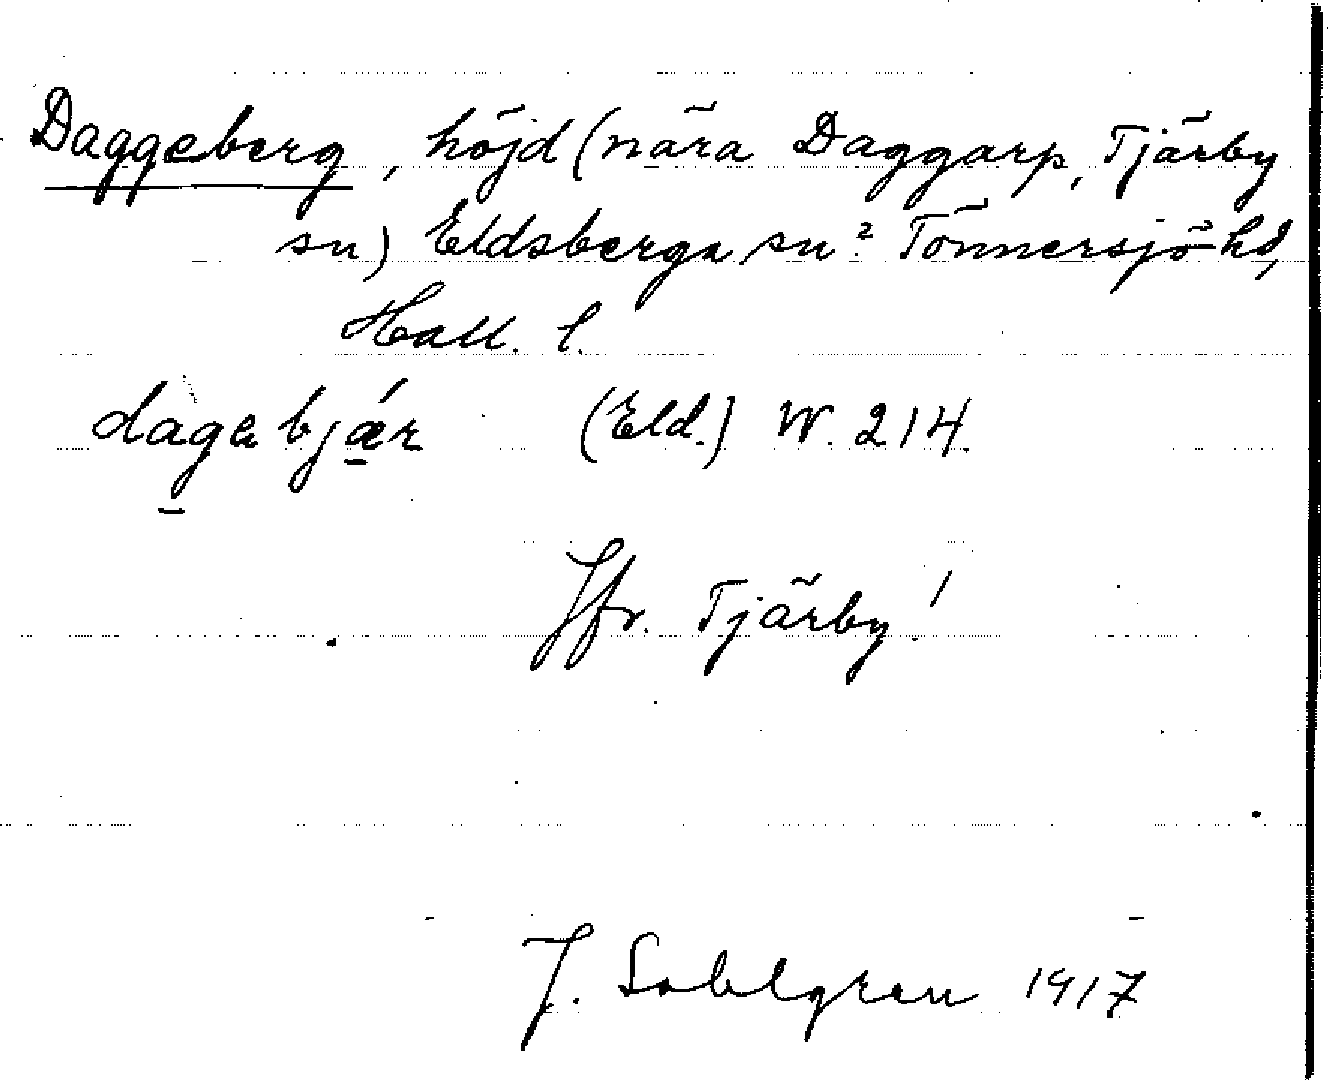 Daggeberg, höjd (nära Daggarp, Tjärby
sn) Eldsberga sn? Tönnersjö hd,
Hall. l.
dagabjær (Eld.) W. 214.
Jfr. Tjärby!
J. Sahlgren 1917